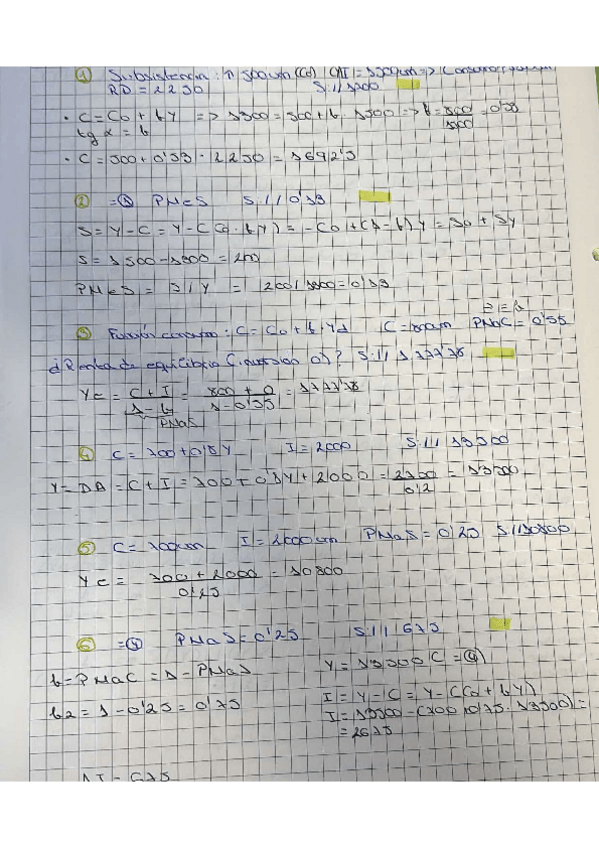 ① Subsistencia: 500um (Co) Consumo
RD = 2250 S://1700
• C = Co + bY => 1300 = 500 + b · 1500 => b = 800/1500 = 0'53
tg α = b
• C = 500 + 0'53 · 2250 = 1692'5
② = ① PMeS S:// 0'13
S = Y - C = Y - C (Co · bY) = -Co + (1 - b) Y = So + SY
S = 1500 - 1300 = 200
PMeS = S / Y = 200/1500 = 0'13
③ Función consumo: C = Co + b · Yd C = 800um PMaC = 0'55
¿Renta de equilibrio C. 0)? S:// 1.777'78
Ye = C + I / 1 - b = 800 + 0 / 1 - 0'55 = 1777'78
PMaS
④ C = 700 + 0'8Y I = 2000 S:// 13500
Y = DA = C + I = 700 + 0'8Y + 2000 = 2700 / 0'2 = 13500
⑤ C = 700um I = 2000um PMaS = 0'25 S://10800
Ye = 700 + 2000 / 0'25 = 10800
⑥ = ④ PMaS = 0'25 S:// 675
b = PMaC = 1 - PMaS Y = 13500 C = ④
b2 = 1 - 0'25 = 0'75 I = Y - C = Y - C (Co + bY)
I = 13500 - (700 + 0'75 · 13500) =
= 2675
ΔI = 675